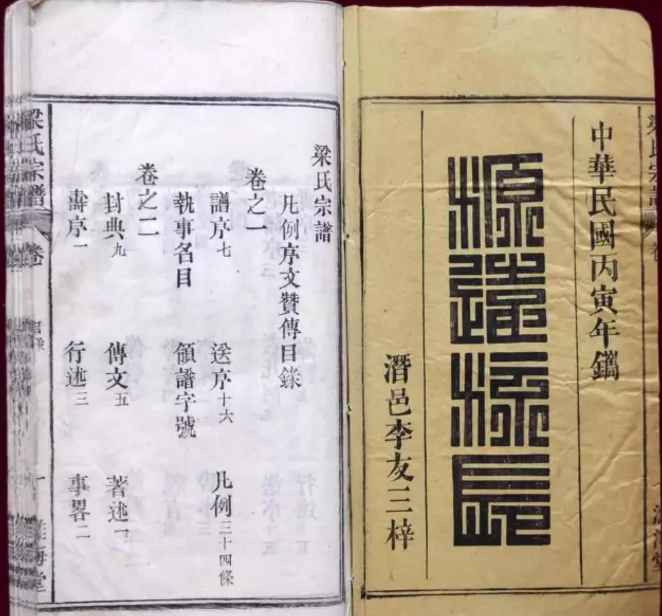 梁氏宗譜
中華民國丙寅年鐫
源遠流長
潛邑李友三梓
梁氏宗譜
凡例序文贊傳目錄
卷之一
譜序七 送序十六 凡例三十四條
執事名目 領譜字號
卷之二
封典九 傳文五 著述一
壽序一 行述三 事畧二
梁氏宗譜 卷 一 堂